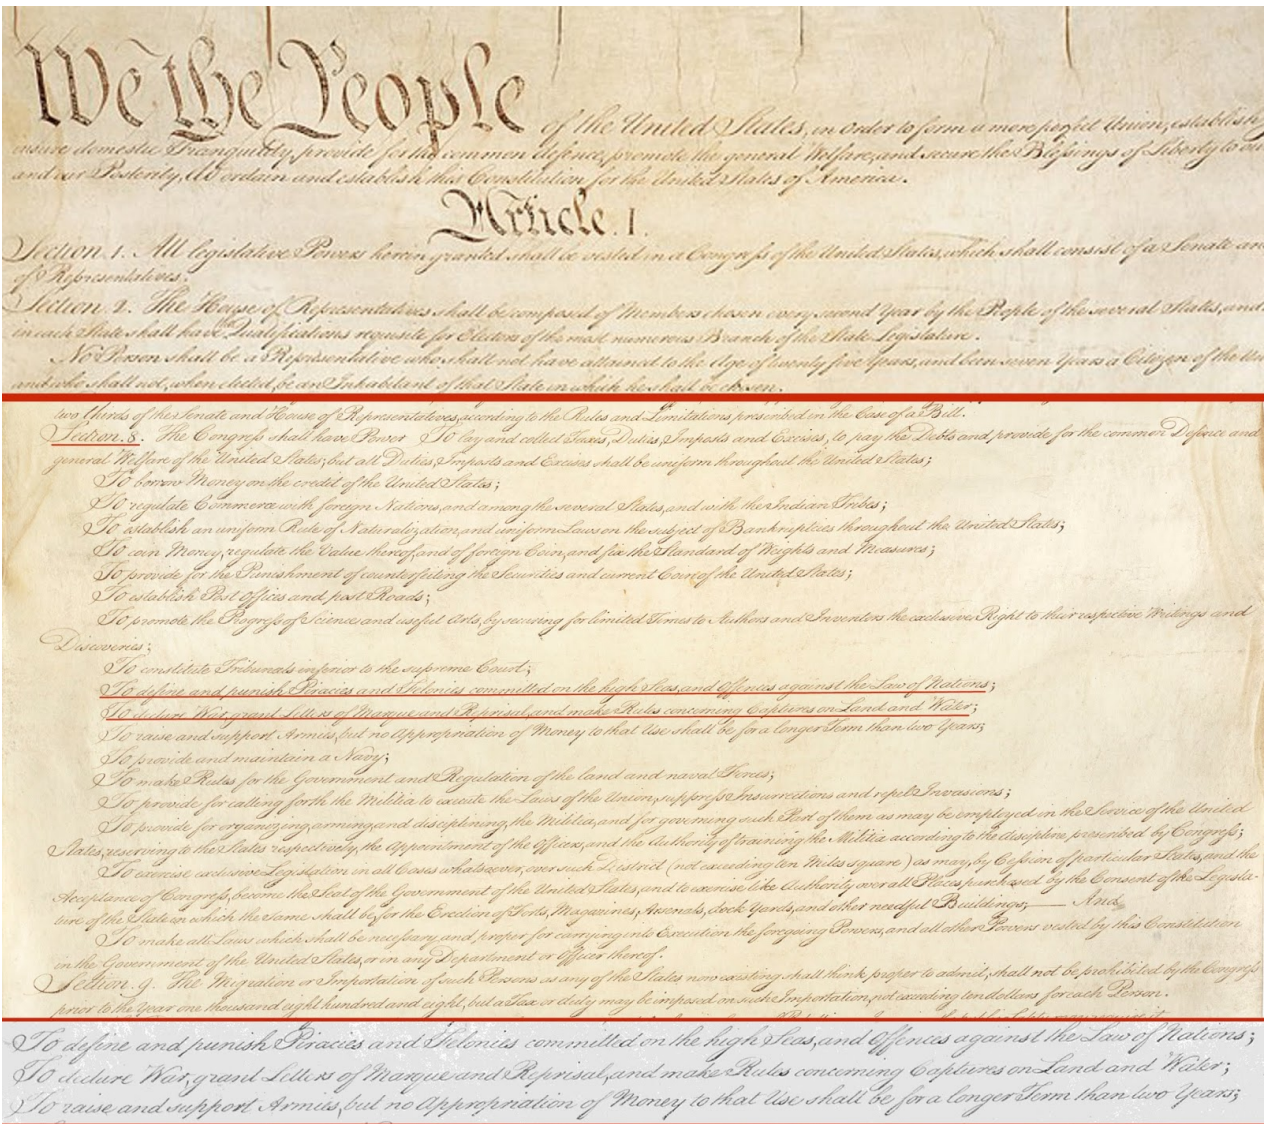 We the People of the United States, in Order to form a more perfect Union, establish
insure domestic Tranquility, provide for the common defence, promote the general Welfare, and secure the Blessings of Liberty to our
and our Posterity, do ordain and establish this Constitution for the United States of America.
Article. I.
Section. 1. All legislative Powers herein granted shall be vested in a Congress of the United States, which shall consist of a Senate and
of Representatives.
Section. 2. The House of Representatives shall be composed of Members chosen every second Year by the People of the several States, and
in each State shall have the Qualifications requisite for Electors of the most numerous Branch of the State Legislature.
No Person shall be a Representative who shall not have attained to the Age of twenty five Years, and been seven Years a Citizen of the
and who shall not, when elected, be an Inhabitant of that State in which he shall be chosen.
two thirds of the Senate and House of Representatives, according to the Rules and Limitations prescribed in the Case of a Bill.
Section. 8. The Congress shall have Power To lay and collect Taxes, Duties, Imposts and Excises, to pay the Debts and provide for the common Defence and
general Welfare of the United States; but all Duties, Imposts and Excises shall be uniform throughout the United States;
To borrow Money on the credit of the United States;
To regulate Commerce with foreign Nations, and among the several States, and with the Indian Tribes;
To establish an uniform Rule of Naturalization, and uniform Laws on the subject of Bankruptcies throughout the United States;
To coin Money, regulate the Value thereof, and of foreign Coin, and fix the Standard of Weights and Measures;
To provide for the Punishment of counterfeiting the Securities and current Coin of the United States;
To establish Post Offices and post Roads;
To promote the Progress of Science and useful Arts, by securing for limited Times to Authors and Inventors the exclusive Right to their respective Writings and
Discoveries;
To constitute Tribunals inferior to the supreme Court;
To define and punish Piracies and Felonies committed on the high Seas, and Offences against the Law of Nations;
To declare War, grant Letters of Marque and Reprisal, and make Rules concerning Captures on Land and Water;
To raise and support Armies, but no Appropriation of Money to that Use shall be for a longer Term than two Years;
To provide and maintain a Navy;
To make Rules for the Government and Regulation of the land and naval Forces;
To provide for calling forth the Militia to execute the Laws of the Union, suppress Insurrections and repel Invasions;
To provide for organizing, arming, and disciplining, the Militia, and for governing such Part of them as may be employed in the Service of the United
States, reserving to the States respectively, the Appointment of the Officers, and the Authority of training the Militia according to the discipline prescribed by Congress;
To exercise exclusive Legislation in all Cases whatsoever, over such District (not exceeding ten Miles square) as may, by Cession of particular States, and the
Acceptance of Congress, become the Seat of the Government of the United States, and to exercise like Authority over all Places purchased by the Consent of the Legisla-
ture of the State in which the Same shall be, for the Erection of Forts, Magazines, Arsenals, dock Yards, and other needful Buildings;—— And
To make all Laws which shall be necessary and proper for carrying into Execution the foregoing Powers, and all other Powers vested by this Constitution
in the Government of the United States, or in any Department or Officer thereof.
Section. 9. The Migration or Importation of such Persons as any of the States now existing shall think proper to admit, shall not be prohibited by the Congress
prior to the Year one thousand eight hundred and eight, but a Tax or duty may be imposed on such Importation, not exceeding ten dollars for each Person.
To define and punish Piracies and Felonies committed on the high Seas, and Offences against the Law of Nations;
To declare War, grant Letters of Marque and Reprisal, and make Rules concerning Captures on Land and Water;
To raise and support Armies, but no Appropriation of Money to that Use shall be for a longer Term than two Years;